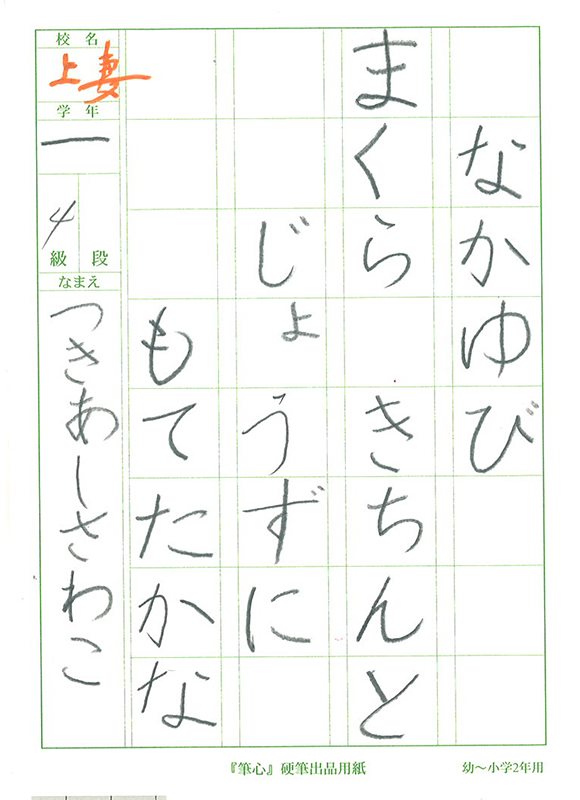 なかゆび
まくら きちんと
じょうずに
もてたかな
校名
上妻
学年
一
4
級 段
なまえ
つきあしさわこ
『筆心』硬筆出品用紙
幼～小学2年用